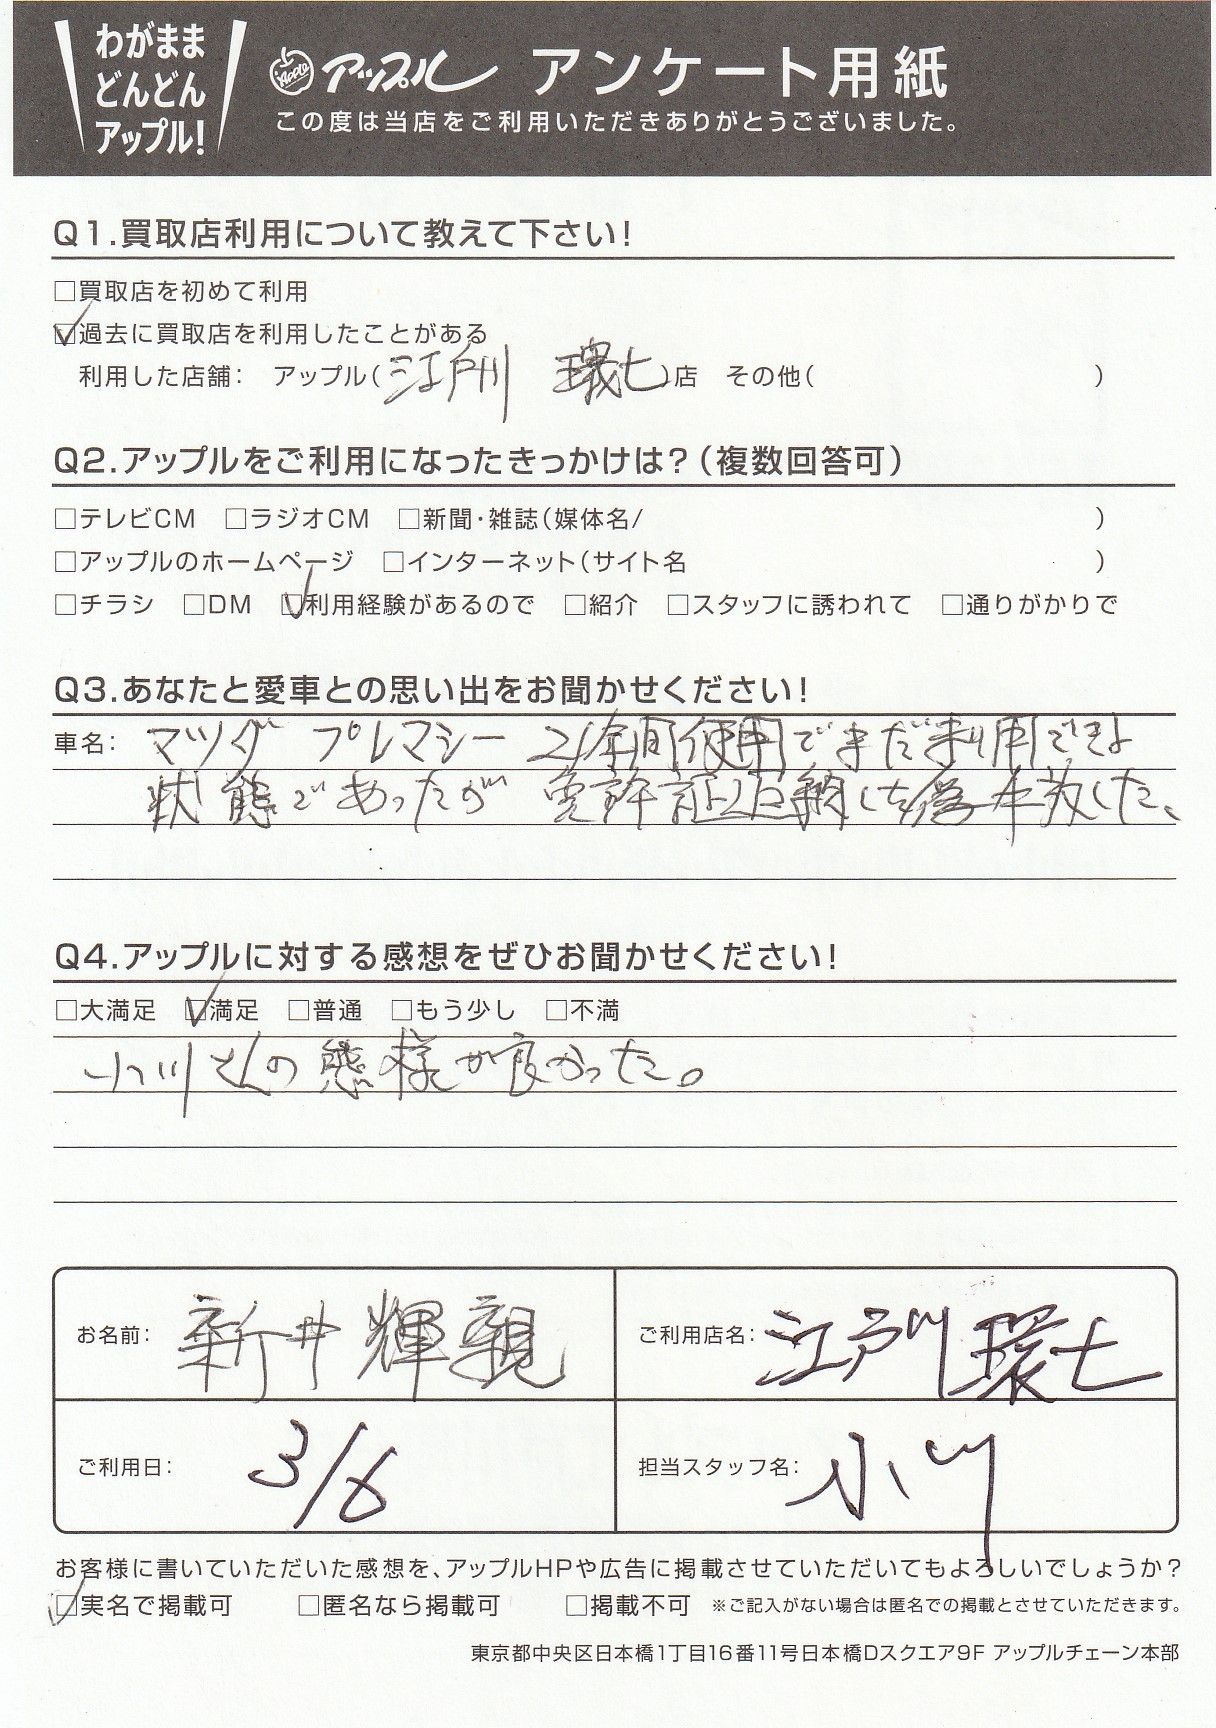 わがまま
どんどん
アップル!
Apple アップル アンケート用紙
この度は当店をご利用いただきありがとうございました。
Q1.買取店利用について教えて下さい!
□買取店を初めて利用
☑過去に買取店を利用したことがある
利用した店舗: アップル(江戸川 環七)店 その他( )
Q2.アップルをご利用になったきっかけは?(複数回答可)
□テレビCM □ラジオCM □新聞・雑誌(媒体名/ )
□アップルのホームページ □インターネット(サイト名 )
□チラシ □DM ☑利用経験があるので □紹介 □スタッフに誘われて □通りがかりで
Q3.あなたと愛車との思い出をお聞かせください!
車名: マツダ プレマシー 21年間使用でまだ利用できる
状態であったが 免許証返納した為 した、
Q4.アップルに対する感想をぜひお聞かせください!
□大満足 ☑満足 □普通 □もう少し □不満
小川さんの態様が良かった。
お名前: 新井輝親
ご利用店名: 江戸川環七
ご利用日: 3/6
担当スタッフ名: 小川
お客様に書いていただいた感想を、アップルHPや広告に掲載させていただいてもよろしいでしょうか?
☑実名で掲載可 □匿名なら掲載可 □掲載不可 ※ご記入がない場合は匿名での掲載とさせていただきます。
東京都中央区日本橋1丁目16番11号日本橋Dスクエア9F アップルチェーン本部